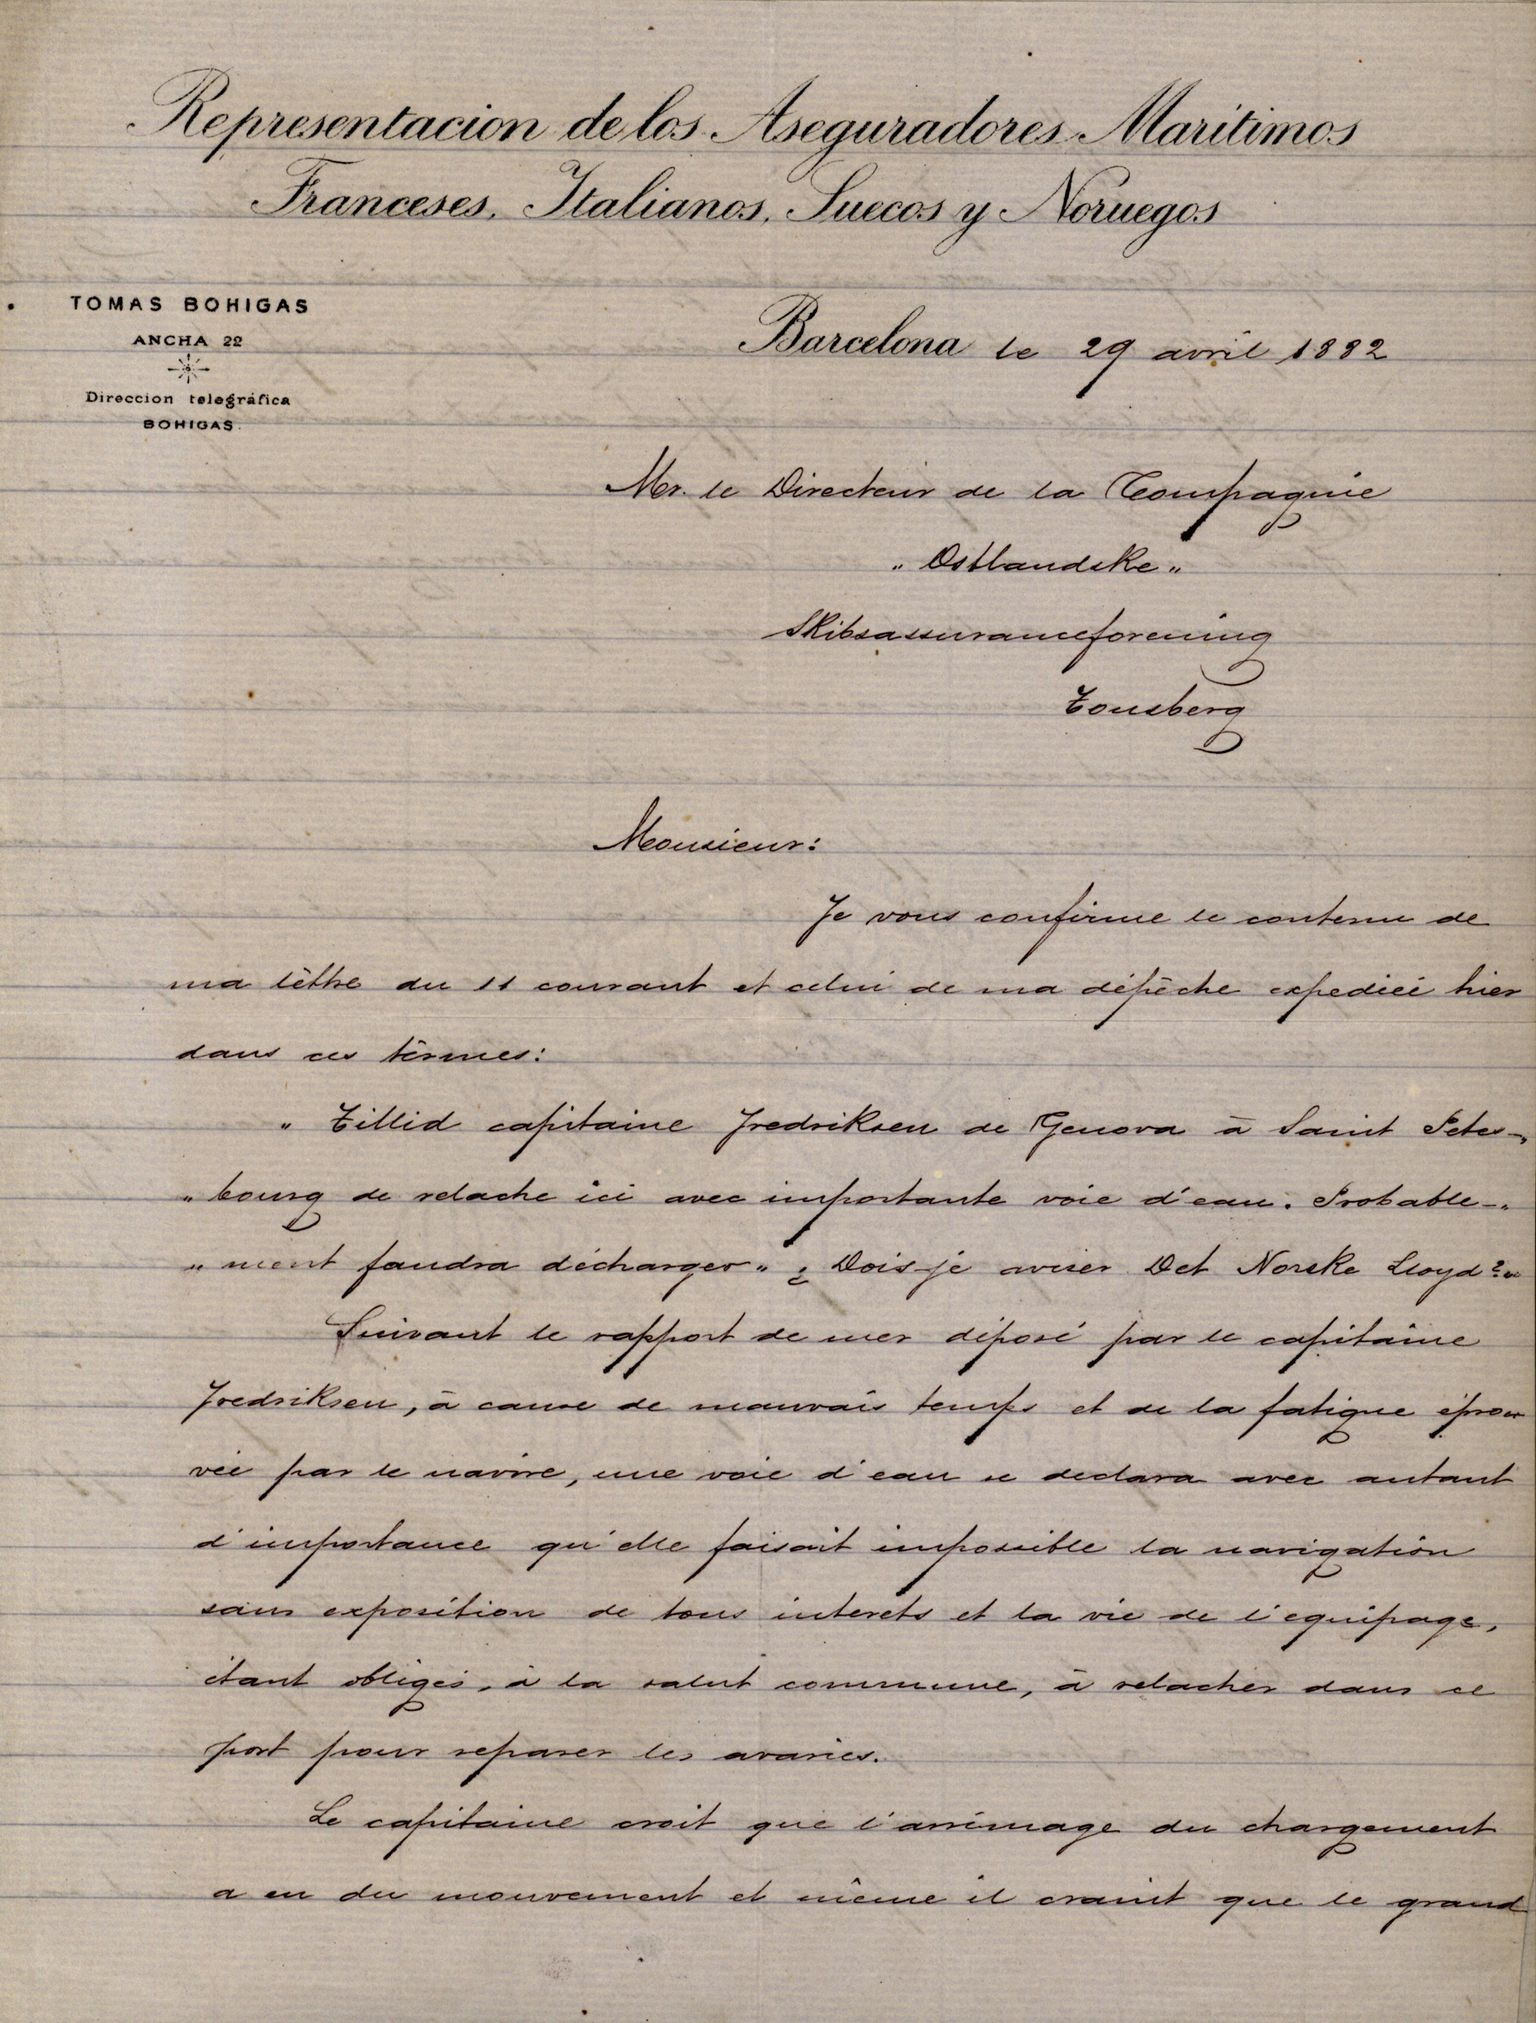 Representacion de los Aseguradores Maritimos
Franceses, Italianos, Suecos y Noruegos
TOMAS BOHIGAS
ANCHA 22
Direccion telegráfica
BOHIGAS.
Barcelona le 29 avril 1882
Mr. le Directeur de la Compagnie
"Ostlandske"
Skibsassuranceforening
Tonsberg
Monsieur:
Je vous confirme le contenu de
ma lêttre du 11 courant et celui de ma dépêche expediéé hier
dans ces têrmes:
" Tillid capitaine Fredriksen de Genova à Saint Peters-"
" bourg de relache ici avec importante voie d'eau. Probable-"
" ment faudra décharger" ¿ Dois-jé aviser Det Norske Lloyd?"
Suivant le rapport de mer déposé par le capitaine
Fredriksen, à cause de mauvais temps et de la fatigue éprou
véé par le navire, une voie d'eau se declara avec autant
d'importance qu'elle faisait impossible la navigation
sans exposition de tous interets et la vie de l'equipage,
étant obligés, à la salut commune, à relacher dans ce
port pour reparer les avaries.
Le capitaine croit que l'arrimage du chargement
a eu du mouvement et même il craint que le grand